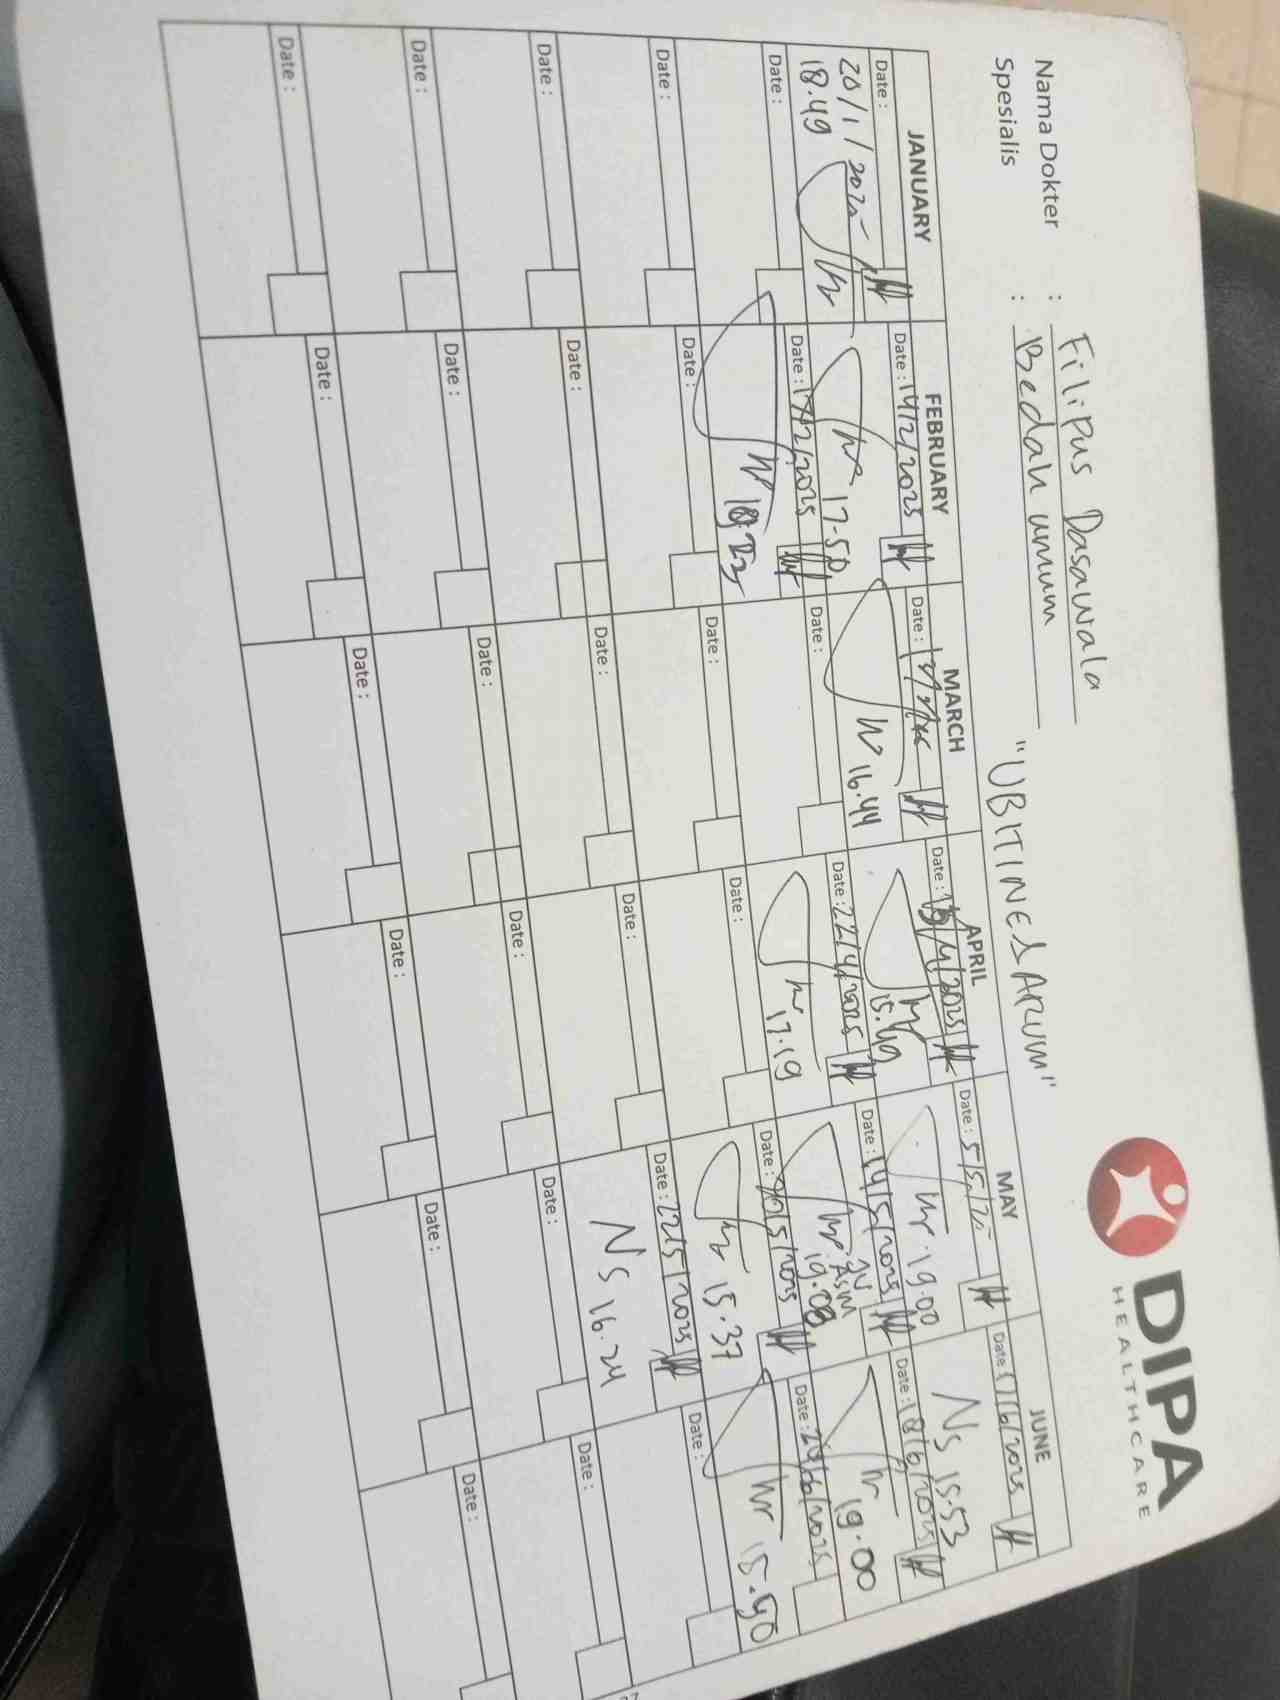 DIPA
HEALTHCARE
Nama Dokter : Filipus Dasawala
Spesialis : Bedah umum
"UBITINESARUM"
JANUARY
Date :
20/1/202
18.49
Date :
Date :
Date :
Date :
Date :
FEBRUARY
Date : 14/2/2025
17.50
Date : 17/2/2025
Date :
Date :
Date :
Date :
MARCH
Date :
16.44
Date :
Date :
Date :
Date :
Date :
APRIL
Date : /4/2025
15.49
Date : 22/4/2025
17.19
Date :
Date :
Date :
Date :
MAY
Date : 5/5/2
19.00
Date : 14/5/2025
JV
ASM
19.00
Date : 20/5/2025
15.37
Date : 22/5/2025
NS 16.24
Date :
Date :
JUNE
Date : 17/6/2025
NS 15.53
Date : 18/6/2025
19.00
Date : 20/6/2025
15.40
Date :
Date :
Date :